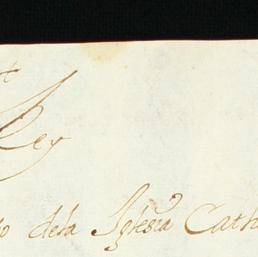 Rey
dela Iglesia Cath